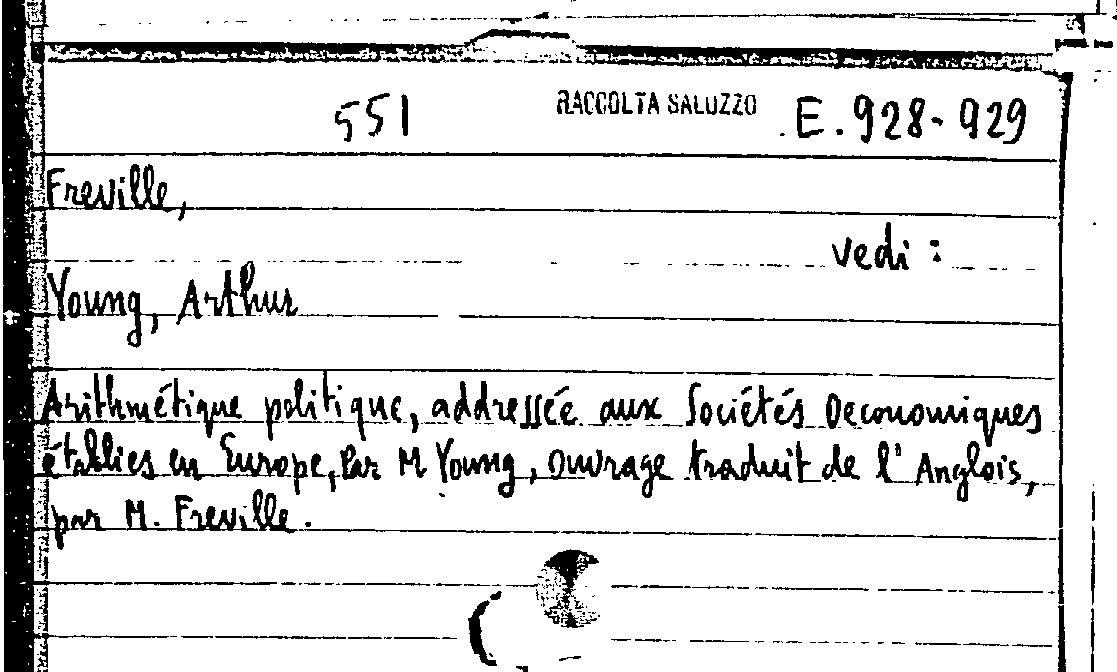 551 RACCOLTA SALUZZO E.928-929
Freville,
vedi :
Young, Arthur
Arithmétique politique, addressée aux Sociétés Oeconomiques
établies en Europe, Par M Young, Ouvrage traduit de l' Anglois,
par M. Freville.